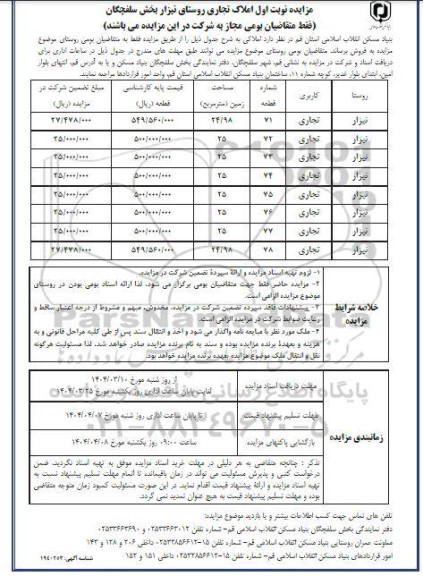 مزایده نوبت اول املاک تجاری روستای نیزار بخش سلفچگان
(فقط متقاضیان بومی مجاز به شرکت در این مزایده می باشند)
بنیاد مسکن انقلاب اسلامی استان قم در نظر دارد املاکی به شرح جدول ذیل را از طریق مزایده فقط به متقاضیان بومی روستای موضوع
مزایده به فروش برساند. متقاضیان بومی روستای موضوع مزایده می توانند طبق مهلت های مندرج در جدول ذیل در ساعات اداری برای
دریافت اسناد و شرکت در مزایده به نشانی قم، شهر سلفچگان، دفتر نمایندگی بخش سلفچگان بنیاد مسکن و یا به آدرس قم، انتهای بلوار
امین، ابتدای بلوار غدیر، کوچه شماره ۱۱، ساختمان بنیاد مسکن انقلاب اسلامی استان قم، واحد امور قراردادها مراجعه نمایند.
روستا کاربری شماره قطعه مساحت زمین (مترمربع) قیمت پایه کارشناسی قطعه (ریال) مبلغ تضمین شرکت در مزایده (ریال)
نیزار تجاری ۷۱ ۲۴/۹۸ ۵۴۹/۵۶۰/۰۰۰ ۲۷/۴۷۸/۰۰۰
نیزار تجاری ۷۲ ۲۵ ۵۰۰/۰۰۰/۰۰۰ ۲۵/۰۰۰/۰۰۰
نیزار تجاری ۷۳ ۲۵ ۵۰۰/۰۰۰/۰۰۰ ۲۵/۰۰۰/۰۰۰
نیزار تجاری ۷۴ ۲۵ ۵۰۰/۰۰۰/۰۰۰ ۲۵/۰۰۰/۰۰۰
نیزار تجاری ۷۵ ۲۵ ۵۰۰/۰۰۰/۰۰۰ ۲۵/۰۰۰/۰۰۰
نیزار تجاری ۷۶ ۲۵ ۵۰۰/۰۰۰/۰۰۰ ۲۵/۰۰۰/۰۰۰
نیزار تجاری ۷۷ ۲۵ ۵۰۰/۰۰۰/۰۰۰ ۲۵/۰۰۰/۰۰۰
نیزار تجاری ۷۸ ۲۴/۹۸ ۵۴۹/۵۶۰/۰۰۰ ۲۷/۴۷۸/۰۰۰
خلاصه شرایط مزایده
۱- لزوم تهیه اسناد مزایده و ارائه سپرده تضمین شرکت در مزایده.
۲- مزایده حاضر فقط جهت متقاضیان بومی برگزار می شود. لذا ارائه اسناد بومی بودن در روستای
موضوع مزایده الزامی است.
۳- پیشنهادات فاقد سپرده تضمین شرکت در مزایده، مخدوش، مبهم و مشروط از درجه اعتبار ساقط و
رعایت ضوابط شرکت در مزایده الزامی است.
۴- ملک مورد نظر با مبایعه نامه واگذار می شود و اخذ و انتقال سند پس از طی کلیه مراحل قانونی و به
هزینه و بعهده برنده مزایده بوده و سند به نام برنده مزایده صادر خواهد شد. لذا مسئولیت هرگونه
نقل و انتقال ملک موضوع مزایده بعهده برنده مزایده خواهد بود.
زمانبندی مزایده
مهلت دریافت اسناد مزایده از روز شنبه مورخ ۱۴۰۴/۰۳/۱۰
لغایت پایان ساعت اداری روز یکشنبه مورخ ۱۴۰۴/۰۳/۲۵
مهلت تسلیم پیشنهاد قیمت تا پایان ساعت اداری روز شنبه مورخ ۱۴۰۴/۰۴/۰۷
بازگشایی پاکتهای مزایده ساعت ۰۹:۰۰ روز یکشنبه مورخ ۱۴۰۴/۰۴/۰۸
تذکر : چنانچه متقاضی به هر دلیلی در مهلت خرید اسناد مزایده موفق به تهیه اسناد نگردید، ضمن
درخواست کتبی و پذیرش مسئولیت می تواند در زمان باقیمانده تا اتمام مهلت تسلیم پیشنهاد نسبت به
تهیه اسناد مزایده و ارائه پیشنهاد قیمت اقدام نماید. در این صورت مسئولیت کمبود زمان متوجه متقاضی
بوده و مهلت تسلیم پیشنهاد قیمت به هیچ عنوان تمدید نمی گردد.
تلفن های تماس جهت کسب اطلاعات بیشتر و یا بازدید موضوع مزایده:
دفتر نمایندگی بخش سلفچگان بنیاد مسکن انقلاب اسلامی قم- شماره تلفن
معاونت عمران روستایی بنیاد مسکن انقلاب اسلامی قم- شماره تلفن ۱۵-۰۲۵۳۲۸۵۶۶۱۲ داخلی ۲۰۶ و ۱۲۸ و ۱۴۳
امور قراردادهای بنیاد مسکن انقلاب اسلامی قم- شماره تلفن ۱۵-۰۲۵۳۲۸۵۶۶۱۲ داخلی ۱۵۱ و ۱۵۲
شناسه آگهی: